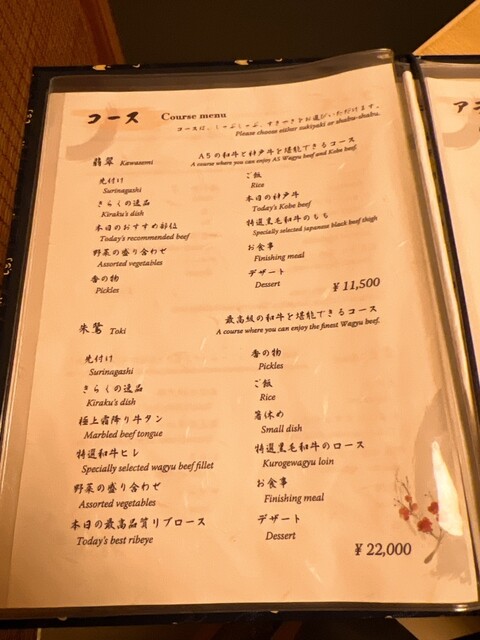 コース Course menu
コースは、しゃぶしゃぶ、すきやきをお選びいただけます。
Please choose either sukiyaki or shabu-shabu.
翡翠 Kawasemi
A5の和牛と神戸牛を堪能できるコース
A course where you can enjoy A5 Wagyu beef and Kobe beef.
先付け
Surinagashi
きらくの逸品
Kiraku's dish
本日のおすすめ部位
Today's recommended beef
野菜の盛り合わせ
Assorted vegetables
香の物
Pickles
ご飯
Rice
本日の神戸牛
Today's Kobe beef
特選黒毛和牛のもも
Specially selected Japanese black beef thigh
お食事
Finishing meal
デザート
Dessert
¥11,500
朱鷺 Toki
最高級の和牛を堪能できるコース
A course where you can enjoy the finest Wagyu beef.
先付け
Surinagashi
きらくの逸品
Kiraku's dish
極上霜降り牛タン
Marbled beef tongue
特選和牛ヒレ
Specially selected wagyu beef fillet
野菜の盛り合わせ
Assorted vegetables
本日の最高品質リブロース
Today's best ribeye
香の物
Pickles
ご飯
Rice
箸休め
Small dish
特選黒毛和牛のロース
Kurogewagyu loin
お食事
Finishing meal
デザート
Dessert
¥22,000